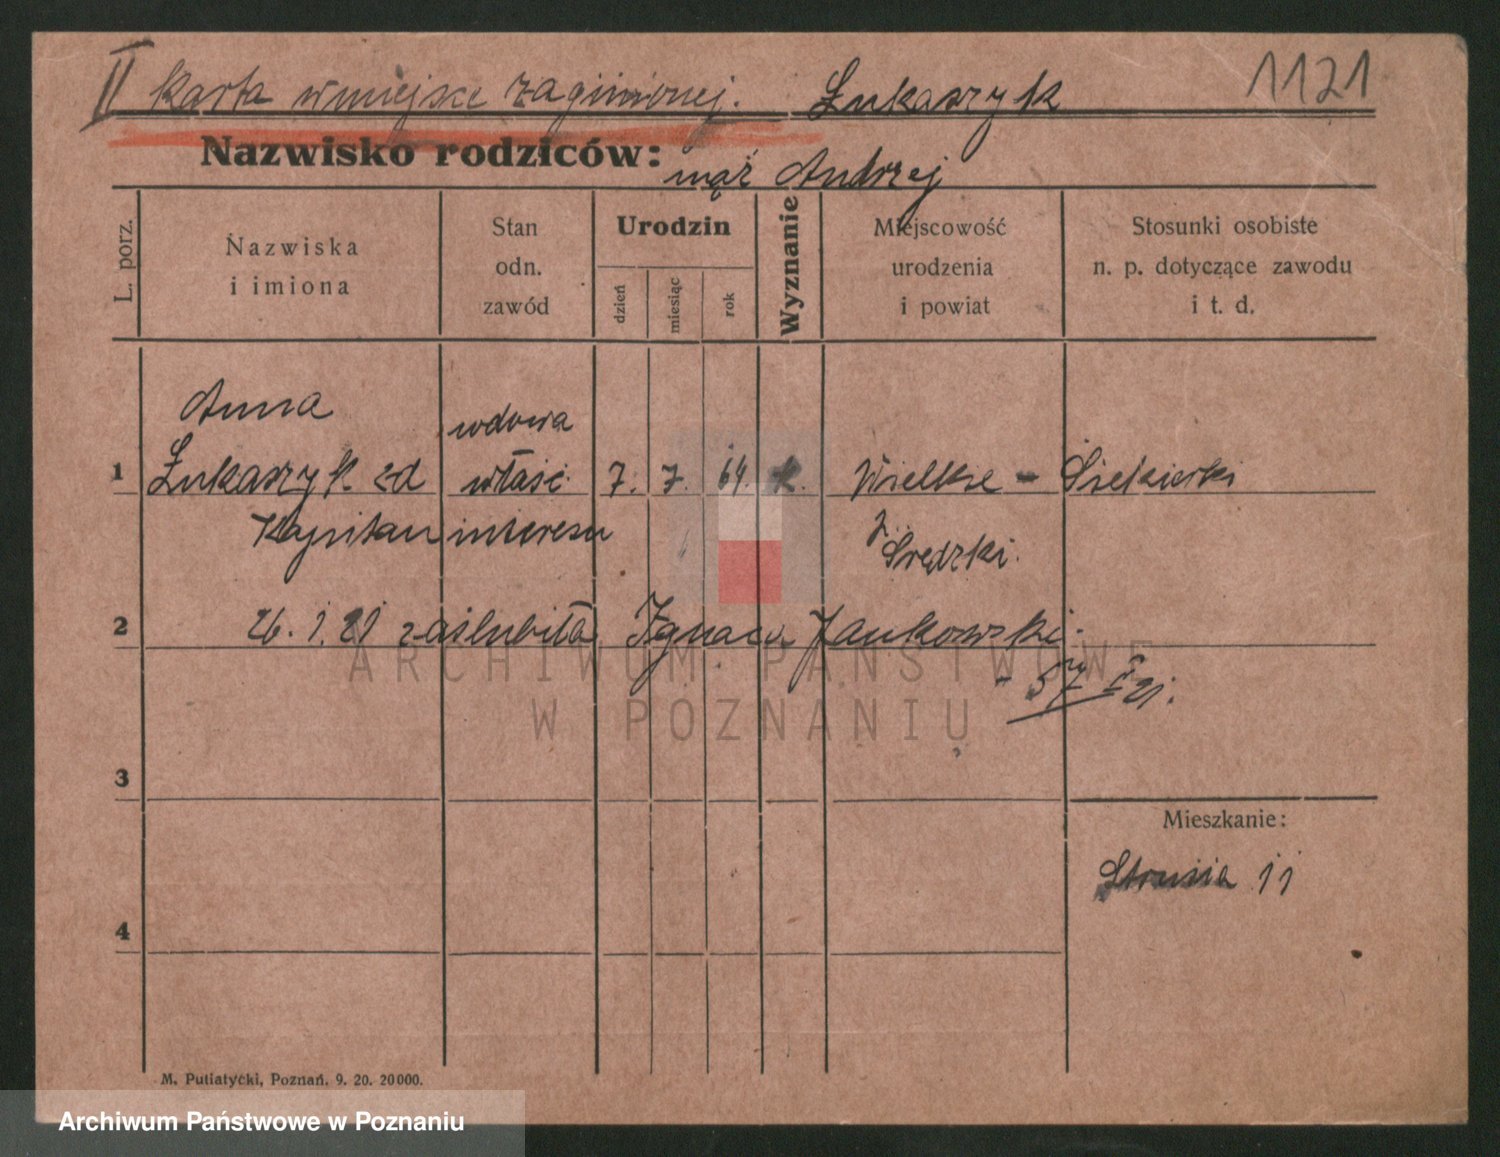 II Karta w miejsce zaginionej. Łukaszyk 1121
Nazwisko rodziców: mąż Andrzej
L. porz.
Nazwiska
i imiona
Stan
odn.
zawód
Urodzin
dzień
miesiąc
rok
Wyznanie
Miejscowość
urodzenia
i powiat
Stosunki osobiste
n. p. dotyczące zawodu
i t. d.
Anna
wdowa
1 Łukaszyk zd właść. 7. 7. 64. k. Wielkie - Siekierki
Kapitan interesu
Średzki.
2 26. 1. 21 zaślubiła Ignaca Jankowski.
ARCHIWUM PAŃSTWOWE
W POZNANIU
3
Mieszkanie:
Strusia 11
4
M. Putiatycki, Poznań. 9. 20. 20000.
Archiwum Państwowe w Poznaniu